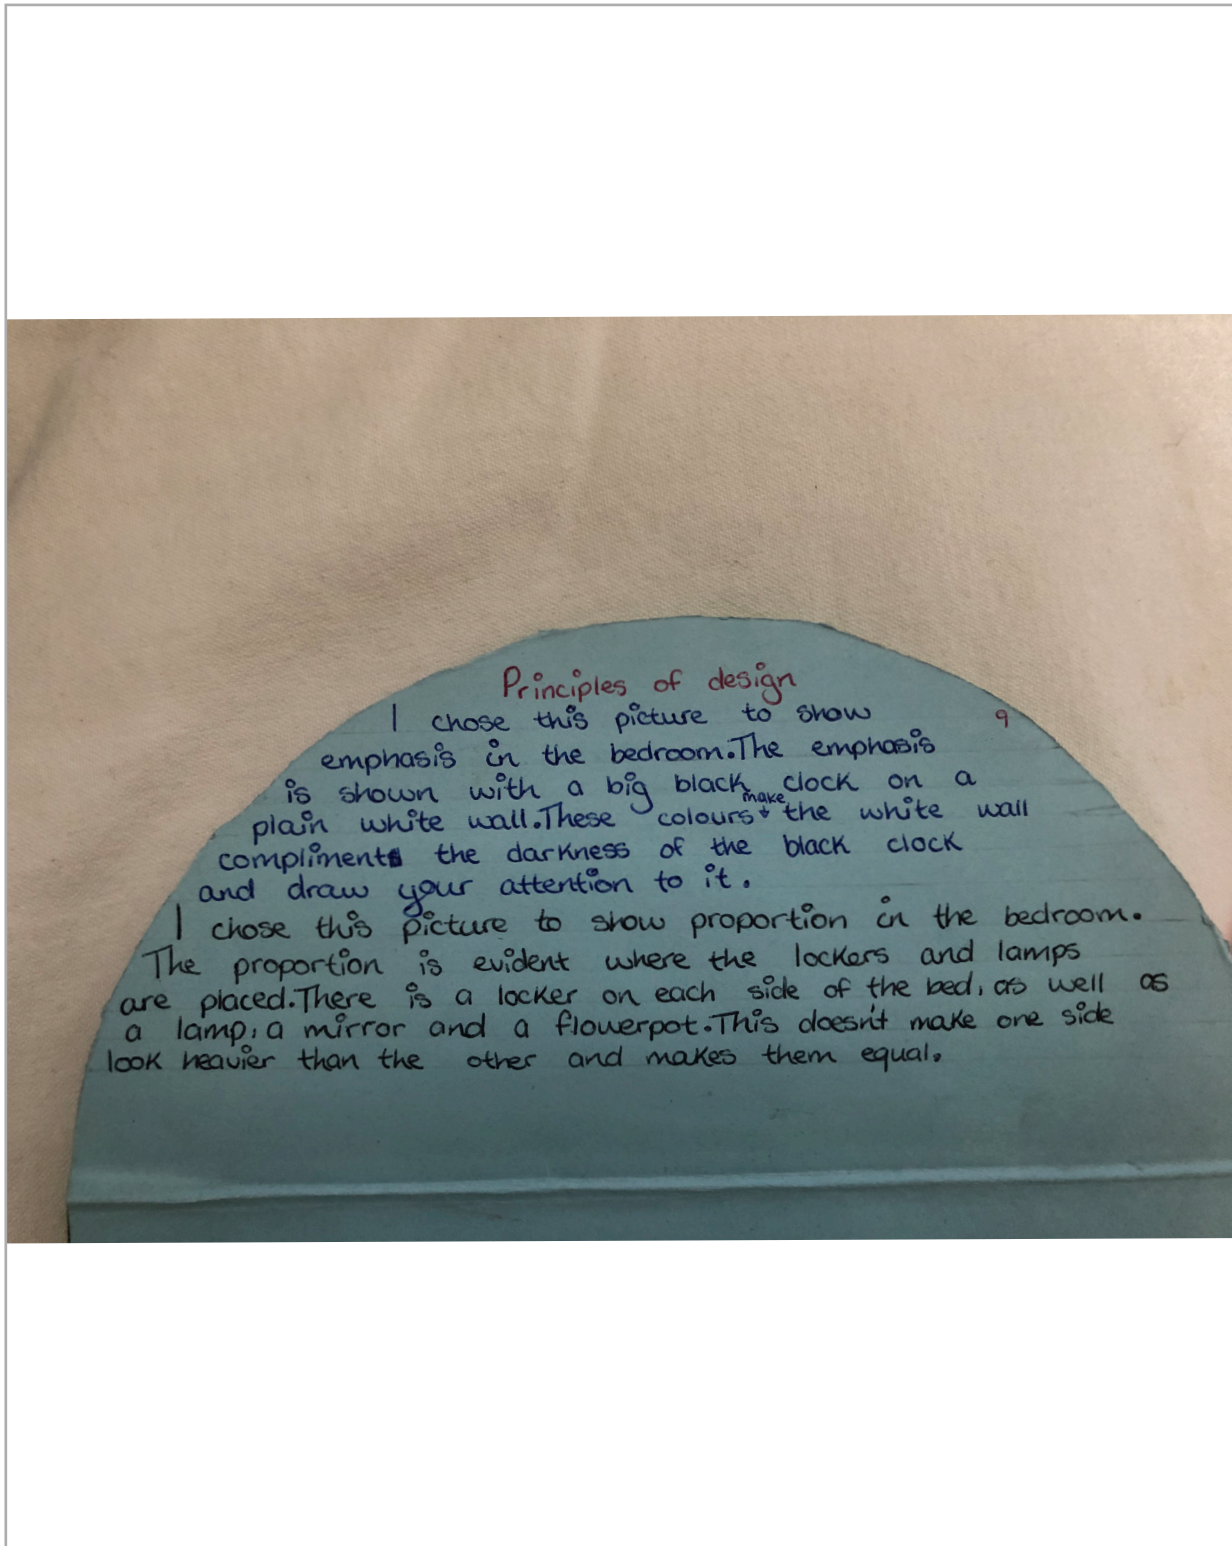 Principles of design
I chose this picture to show
9
emphasis in the bedroom.The emphasis
is shown with a big black clock on a
plain white wall.These colours make the white wall
compliment the darkness of the black clock
and draw your attention to it.
I chose this picture to show proportion in the bedroom.
The proportion is evident where the lockers and lamps
are placed.There is a locker on each side of the bed, as well as
a lamp, a mirror and a flowerpot.This doesn't make one side
look heavier than the other and makes them equal.